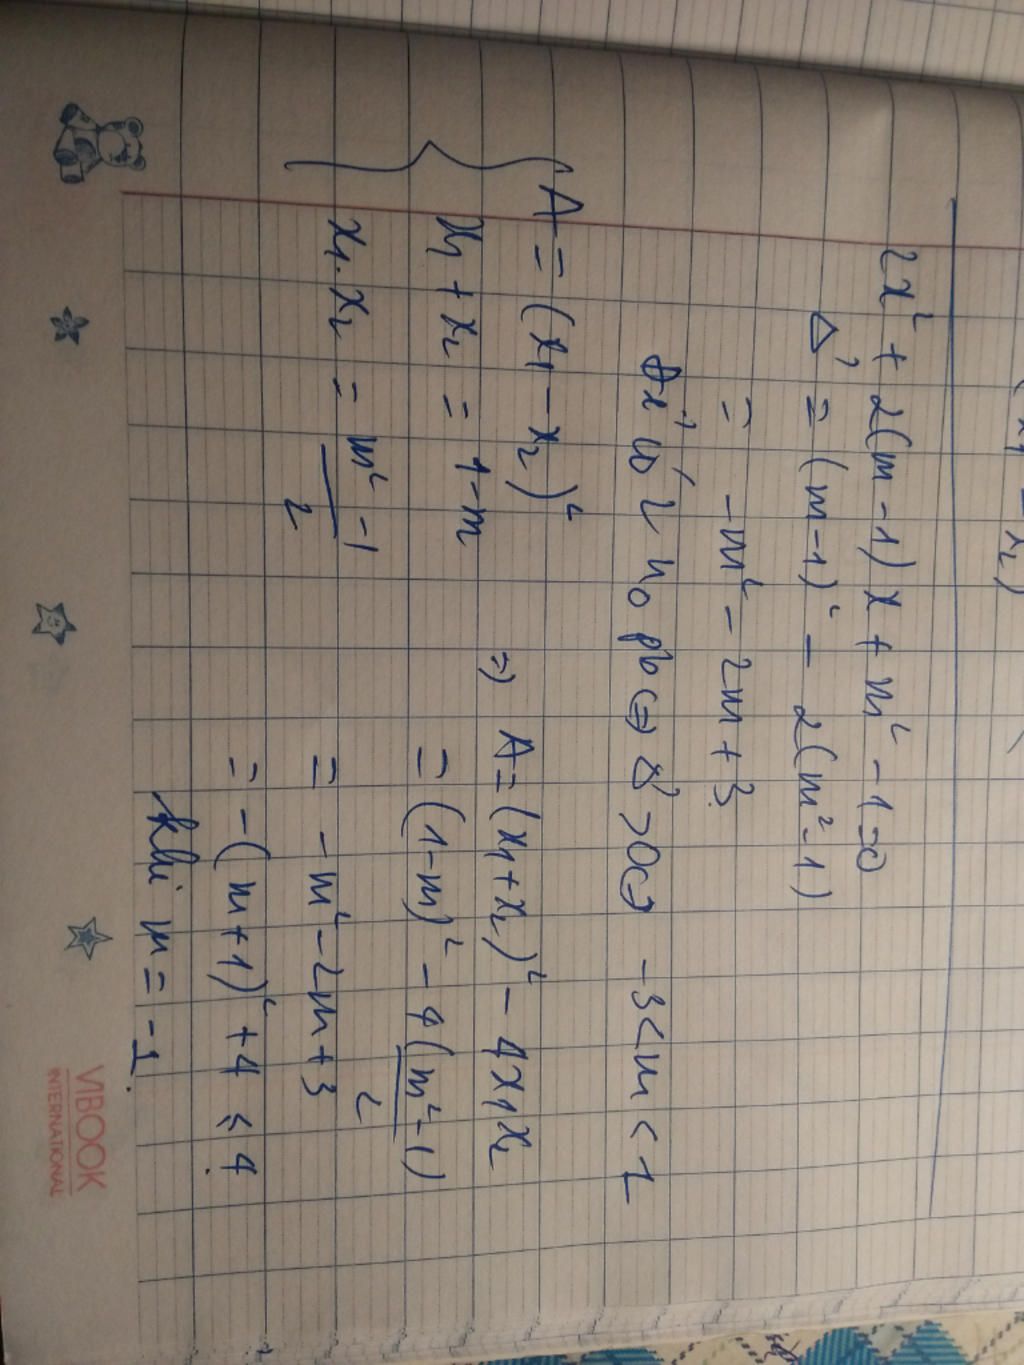 2x² + 2(m-1)x + m² - 1 = 0
Δ' = (m-1)² - 2(m²-1)
= -m² - 2m + 3
có 2 n₀ pb ⇔ Δ' > 0 ⇔ -3 < m < 1
A = (x₁ - x₂)²
x₁ + x₂ = 1-m
x₁.x₂ = (m²-1)/2
⇒ A = (x₁+x₂)² - 4x₁x₂
= (1-m)² - 4(m²-1)/2
= -m² - 2m + 3
= -(m+1)² + 4 ≤ 4
khi m = -1.
VIBOOK
INTERNATIONAL